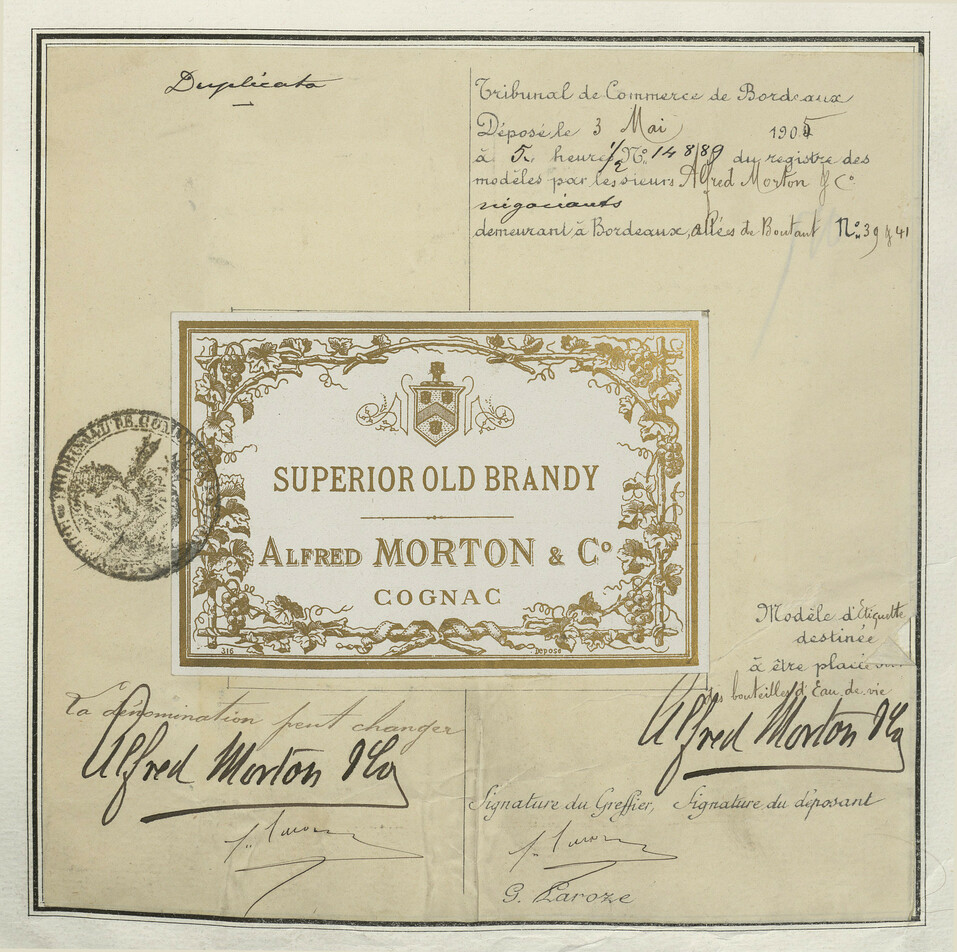 Duplicata
Tribunal de Commerce de Bordeaux
Déposé le 3 Mai 1905
à 5 heures 1/2 No. 14889 du registre des
modèles par les sieurs Alfred Morton & Co
négociants
demeurant à Bordeaux, allées de Boutaut No. 39 & 41
SUPERIOR OLD BRANDY
ALFRED MORTON & Co
COGNAC
316
Déposé
TRIBUNAL DE COMMERCE
Modèle d'Etiquette
destinée
à être placée sur
des bouteilles d'Eau de vie
La dénomination peut changer
Alfred Morton & Co
Alfred Morton & Co
Signature du Greffier, Signature du déposant
G. Laroze